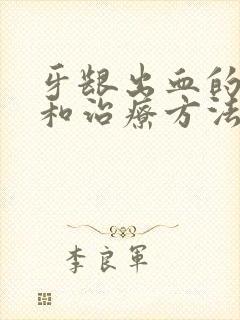 牙龈出血的
和治疗方法
李良军